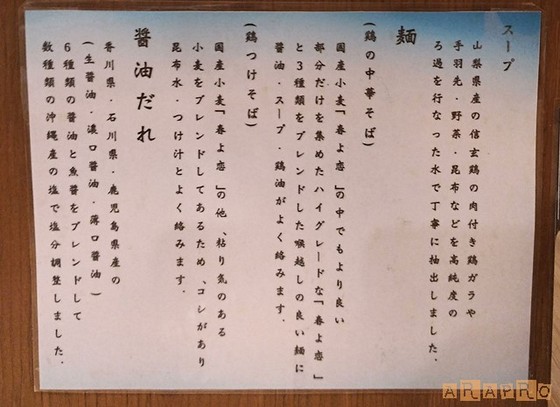 スープ
山梨県産の信玄鶏の肉付き鶏ガラや
手羽先・野菜・昆布などを高純度の
ろ過を行なった水で丁寧に抽出しました。
麺
(鶏の中華そば)
国産小麦「春よ恋」の中でもより良い
部分だけを集めたハイグレードな「春よ恋」
と3種類をブレンドした喉越しの良い麺に
醤油・スープ・鶏油がよく絡みます。
(鶏つけそば)
国産小麦「春よ恋」の他、粘り気のある
小麦をブレンドしてあるため、コシがあり
昆布水・つけ汁とよく絡みます。
醤油だれ
香川県・石川県・鹿児島県産の
(生醤油・濃口醤油・薄口醤油)
6種類の醤油と魚醤をブレンドして
数種類の沖縄産の塩で塩分調整しました。
ARAPRO